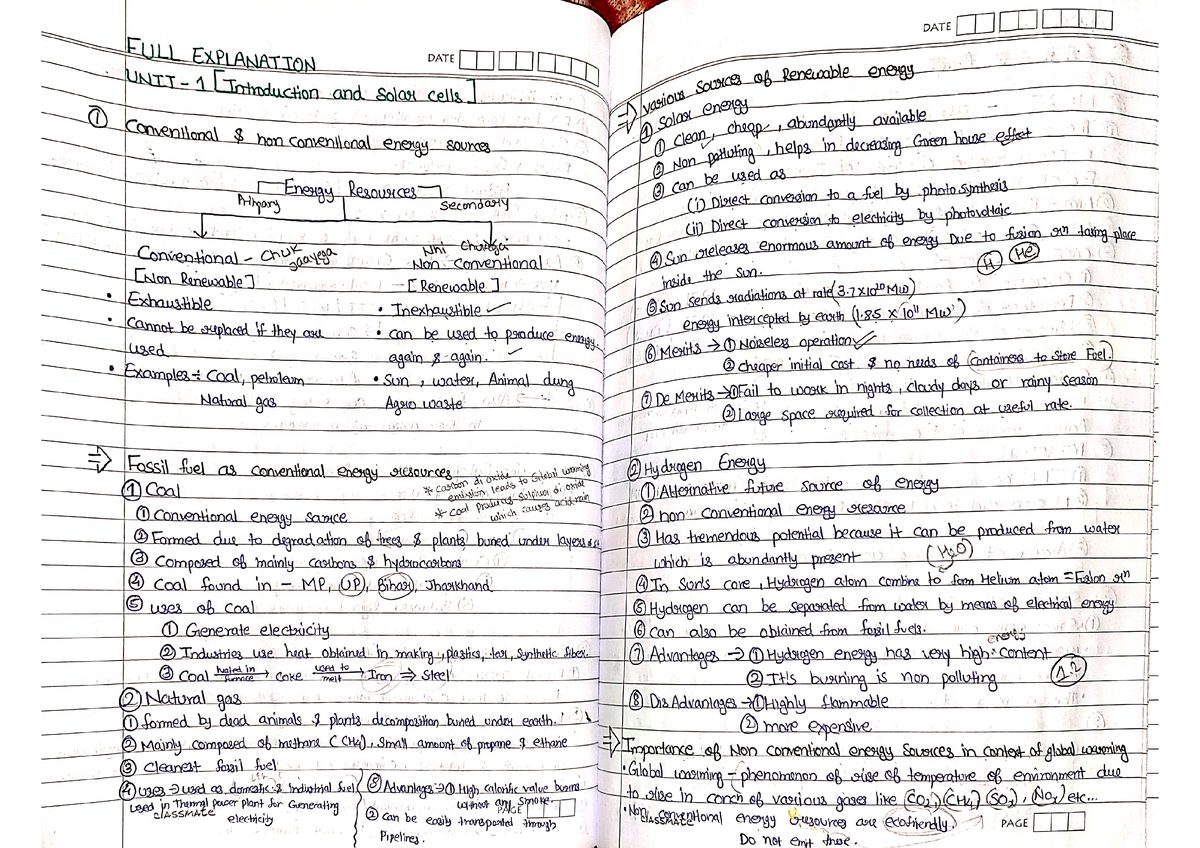 FULL EXPLANATION
DATE
UNIT-1 [Introduction and Solar cells]
① Conventional & non conventional energy sources
Energy Resources
Primary
Secondary
Conventional - Chuk jaayega
[Non Renewable]
• Exhaustible
• Cannot be replaced if they are used
• Examples ÷ Coal, petroleum
Natural gas
Nhi Chukega
Non Conventional
[Renewable]
• Inexhaustible
• can be used to produce energy again & again.
• Sun, water, Animal dung
Agro waste
⇒ Fossil fuel as conventional energy resources
* carbon di oxide emission leads to Global warming
* Coal produces sulphur di oxide which causes acid rain
① Coal
① Conventional energy sarice
② Formed due to degradation of trees & plants buried under layers
③ Composed of mainly carbons & hydrocarbons
④ Coal found in - MP, UP, Bihar, Jharkhand
⑤ uses of coal
① Generate electricity
② Industries use heat obtained in making, plastics, tar, Synthetic fiber.
③ Coal heated in furnace → Coke used to melt → Iron ⇒ Steel
② Natural gas
① formed by dead animals & plants decomposition buried under earth.
② Mainly composed of methane (CH4), Small amount of propane & ethane
③ Cleanest fossil fuel
④ uses → used as domestic & industrial fuel
used in Thermal power plant for Generating electricity
CLASSMATE
⑤ Advantages → ① High calorific value burns without any smoke
PAGE
② Can be easily transported through Pipelines.
DATE
⇒ Various Sources of Renewable energy
① Solar energy
① Clean, cheap, abundantly available
② Non polluting, helps in decreasing Green house effect
③ Can be used as
(i) Direct conversion to a fuel by photosynthesis
(ii) Direct conversion to electricity by photovoltaic
④ Sun releases enormous amount of energy Due to fusion rxn taking place
inside the Sun.
H He
⑤ Sun sends radiations at rate (3.7×10²⁰ MW)
energy intercepted by earth (1.85 × 10¹¹ MW)
⑥ Merits → ① Noiseless operation
② cheaper initial cost & no needs of Containers to Store Fuel.
⑦ De Merits → ① Fail to work in nights, cloudy days or rainy season
② Large space required for collection at useful rate.
② Hydrogen Energy
① Alternative future source of energy
② non conventional energy resource
③ Has tremendous potential because it can be produced from water
which is abundantly present (H₂O)
④ In Sun's core, Hydrogen atom combine to form Helium atom = Fusion rxn
⑤ Hydrogen can be separated from water by means of electrical energy
⑥ Can also be obtained from fossil fuels.
⑦ Advantages → ① Hydrogen energy has very high energy content
② It's burning is non polluting
⑧ DisAdvantages → ① Highly flammable
② more expensive
⇒ Importance of Non conventional energy Sources in Context of global warming
• Global warming - phenomenon of rise of temperature of environment due
to rise in concn of various gases like (CO2) (CH4) (SO2) (NO2) etc...
• Non conventional energy resources are ecofriendly.
CLASSMATE
PAGE
Do not emit these.